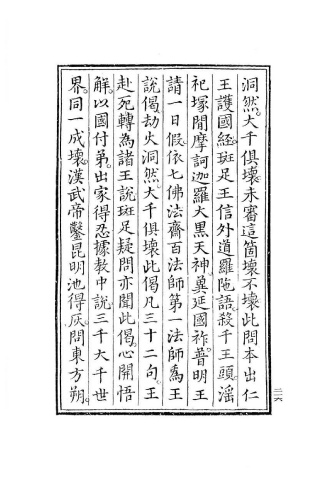 洞然。大千俱壞。未審這箇壞不壞。此問本出仁
王護國經。斑足王信外道羅陁語。殺千王頭。滛
祀塚間摩訶迦羅大黑天神。冀延國祚。普明王
請一日假。依七佛法齋百法師。第一法師爲王
說偈。劫火洞然。大千俱壞。此偈凡三十二句。王
赴死。轉為諸王說。斑足疑問。亦聞此偈。心開悟
解。以國付弟。出家得忍。據敎中說。三千大千世
界。同一成壞。漢武帝鑿昆明池得灰。問東方朔。
二六